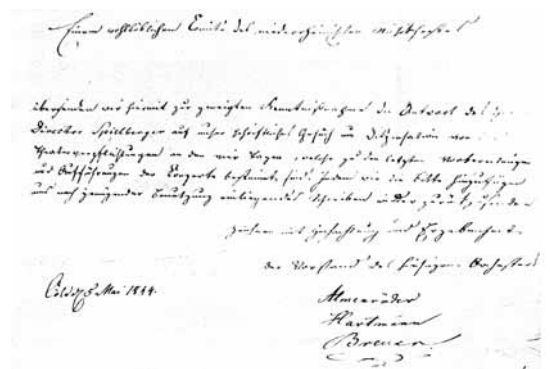 Einem wohllöblichen Comité des niederrheinischen Musikfestes
übersenden wir hiermit zur geneigten Kenntnißnahme die Antwort des
Director Spielberger auf unser schriftliches Gesuch um Dispensation von
Theaterverpflichtungen an den vier Tagen, welche zu den letzten
und Aufführungen der Concerte bestimmt sind. Indem wir die Bitte hinzufügen
uns nach geneigter Benutzung einliegendes Schreiben wieder zurück zu senden
zeichnen mit Hochachtung und Ergebenheit
der Vorstand des hiesigen Orchesters
Cöln, 5 Mai 1844.
Almenräder
Hartmann
Breuer